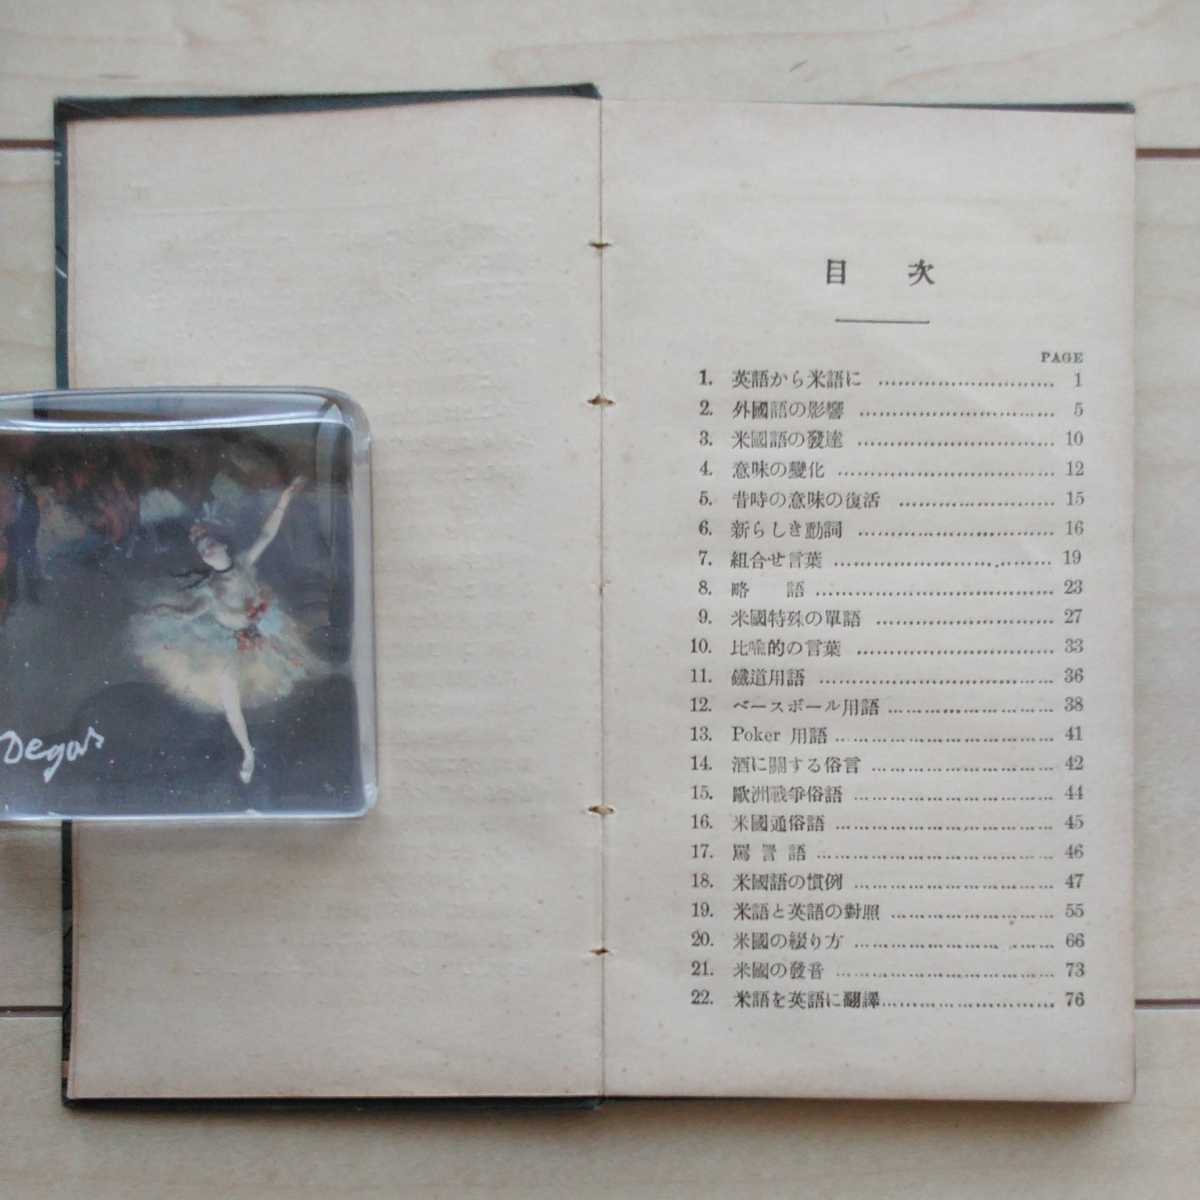 Degas
目 次
PAGE
1. 英語から米語に ................................ 1
2. 外國語の影響 ................................ 5
3. 米國語の發達 ................................ 10
4. 意味の變化 ................................ 12
5. 昔時の意味の復活 ................................ 15
6. 新らしき動詞 ................................ 16
7. 組合せ言葉 ................................ 19
8. 略 語 ................................ 23
9. 米國特殊の單語 ................................ 27
10. 比喩的の言葉 ................................ 33
11. 鐵道用語 ................................ 36
12. ベースボール用語 ................................ 38
13. Poker 用語 ................................ 41
14. 酒に關する俗言 ................................ 42
15. 歐洲戰爭俗語 ................................ 44
16. 米國通俗語 ................................ 45
17. 罵詈語 ................................ 46
18. 米國語の慣例 ................................ 47
19. 米語と英語の對照 ................................ 55
20. 米國の綴り方 ................................ 66
21. 米國の發音 ................................ 73
22. 米語を英語に翻譯 ................................ 76